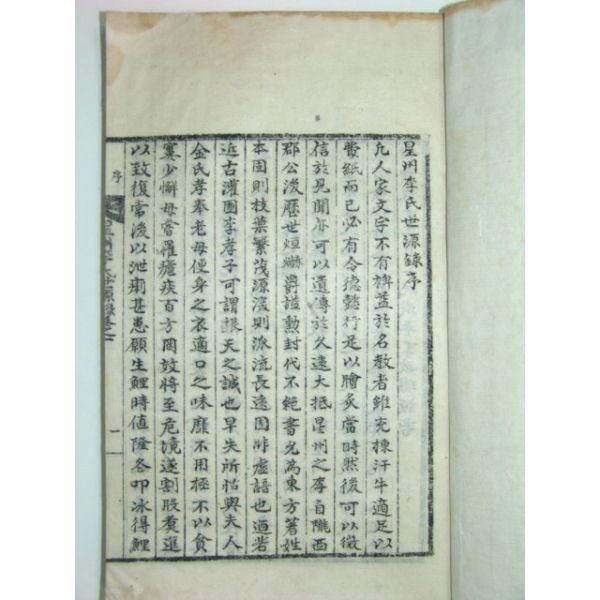 星州李氏世源錄序
凡人家文字不有裨益於名教者雖充棟汗牛適足以
費紙而已必有令德懿行是以膾炙當時然後可以徵
信於見聞亦可以遺傳於久遠大抵星州之李自隴西
郡公後歷世烜爀爵謚勳封代不絕書允為東方著姓
本固則枝葉繁茂源深則派流長遠固非虛語也迺若
近古灌圃李孝子可謂根天之誠也早失所怙與夫人
金氏孝奉老母便身之衣適口之味靡不用極不以貧
窶少懈母嘗罹瘧疾百方罔效將至危境遂割股羹進
以致復常後以泄痢甚患願生鯉時値隆冬叩冰得鯉
序
一